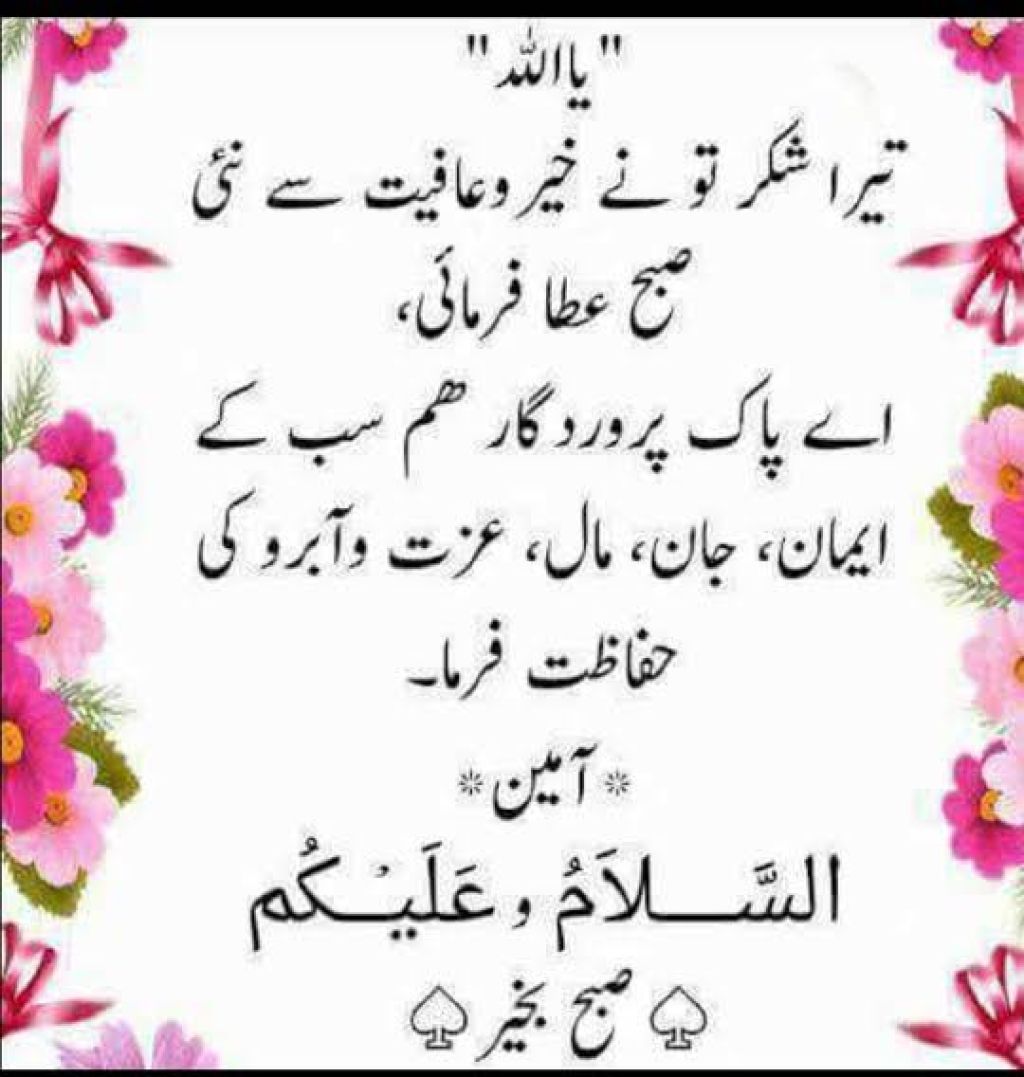 "یااللہ"
تیرا شکر تو نے خیر وعافیت سے نئی
صبح عطا فرمائی،
اے پاک پروردگار ھم سب کے
ایمان، جان، مال، عزت وآبرو کی
حفاظت فرما۔
*آمین*
السَّـــلاَمُ و عَلَيْـــكُم
♤ صبح بخیر ♤